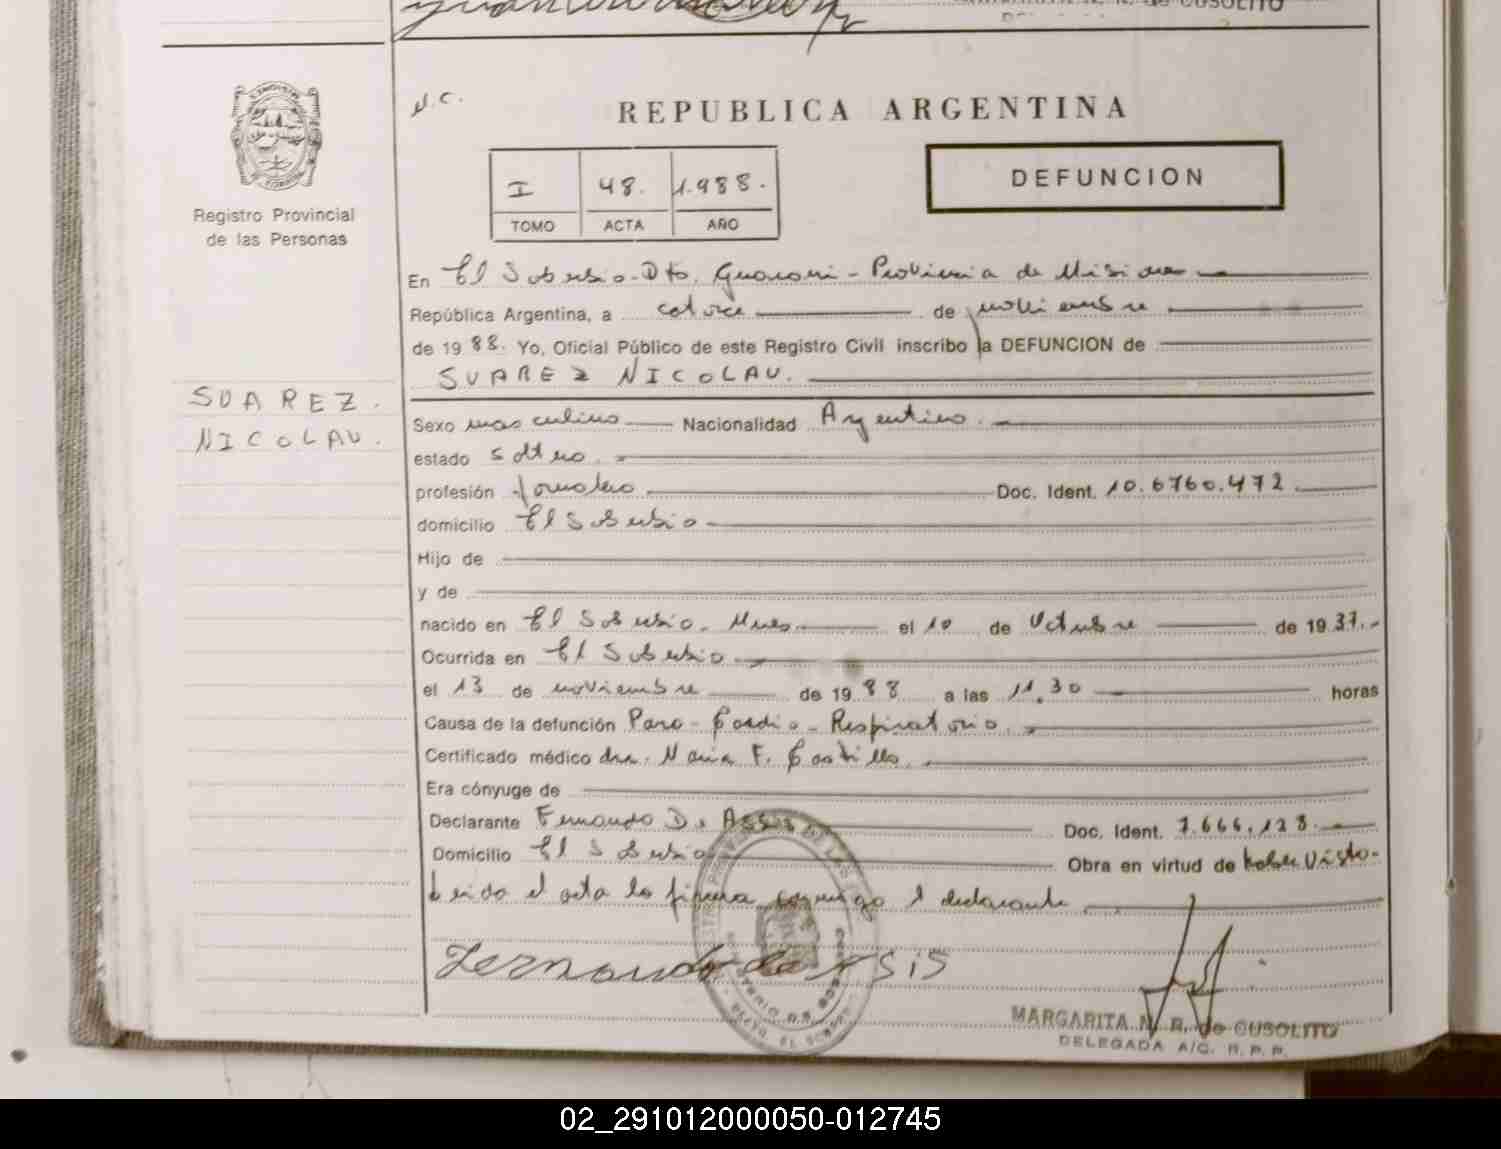 MARGARITA N. R. de CUSOLITO
N.C.
REPUBLICA ARGENTINA
I 48. 1.988.
TOMO ACTA AÑO
DEFUNCION
Registro Provincial
de las Personas
En El Soberbio - Dto. Guarani - Provincia de Misiones
República Argentina, a catorce de noviembre
de 1988. Yo, Oficial Público de este Registro Civil inscribo la DEFUNCION de
SUAREZ NICOLAU.
SUAREZ.
NICOLAU.
Sexo masculino Nacionalidad Argentino.
estado soltero.
profesión Jornalero Doc. Ident. 10.6760.472
domicilio El Soberbio
Hijo de
y de
nacido en El Soberbio. Mnes. el 10 de Octubre de 1937.
Ocurrida en El Soberbio
el 13 de noviembre de 1988 a las 11.30 horas
Causa de la defunción Paro - Cardio - Respiratorio.
Certificado médico dra. Maria F. Castillo.
Era cónyuge de
Declarante Fernando D. Assis Doc. Ident. 7.666.128.
Domicilio El Soberbio Obra en virtud de haber visto.
Leida el acta la firma conmigo el declarante
Fernando de Asis
MARGARITA N. R. de CUSOLITO
DELEGADA A/C. R. P. P.
02_291012000050-012745